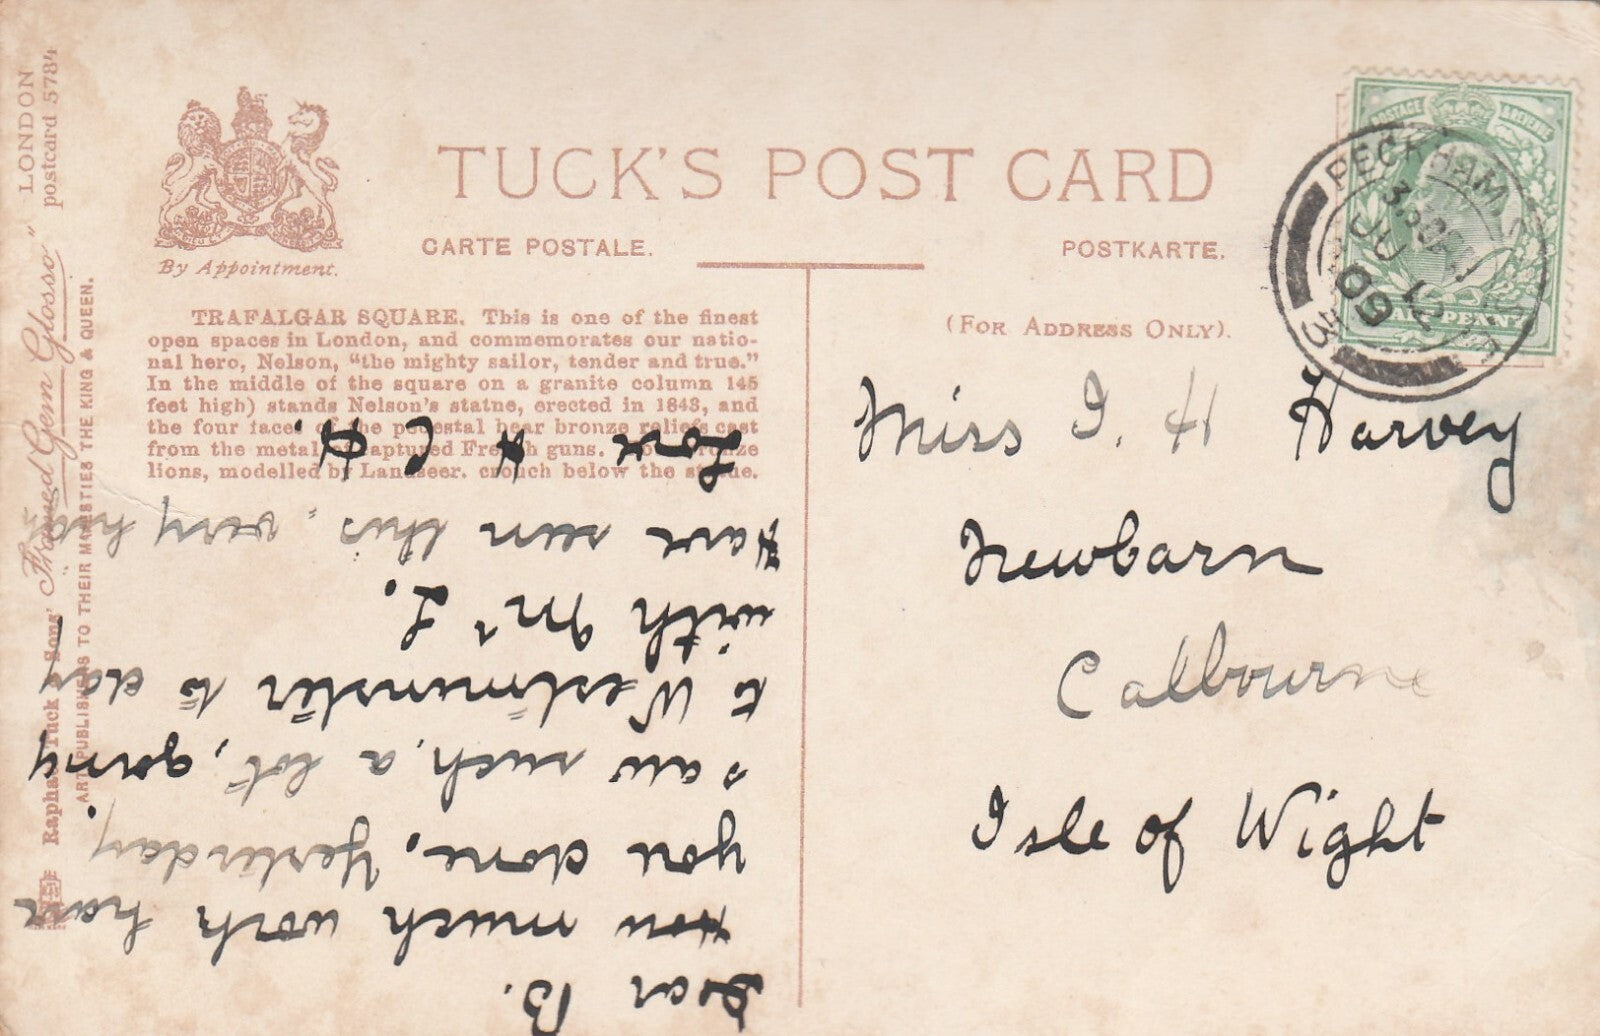 TUCK'S POST CARD
CARTE POSTALE.
POSTKARTE.
By Appointment.
TRAFALGAR SQUARE. This is one of the finest
open spaces in London, and commemorates our natio-
nal hero, Nelson, "the mighty sailor, tender and true."
In the middle of the square on a granite column 145
feet high) stands Nelson's statne, erected in 1843, and
the four faces of the pedestal bear bronze reliefs cast
from the metal of captured French guns. Four bronze
lions, modelled by Landseer. crouch below the statue.
Raphael Tuck & Sons' "Framed Gem Glosso" LONDON
postcard 5784
ART PUBLISHERS TO THEIR MAJESTIES THE KING & QUEEN.
Dear B.
How much work have
you done, Yesterday.
saw such, a lot, going
to Westminster to day
with Mrs L.
Have seen this, very
Love C H.
(FOR ADDRESS ONLY).
Miss I. H Harvey
Newbarn
Calbourne
Isle of Wight
POSTAGE & REVENUE
HALFPENNY
PECKHAM. S.E.
JU 12
09
3